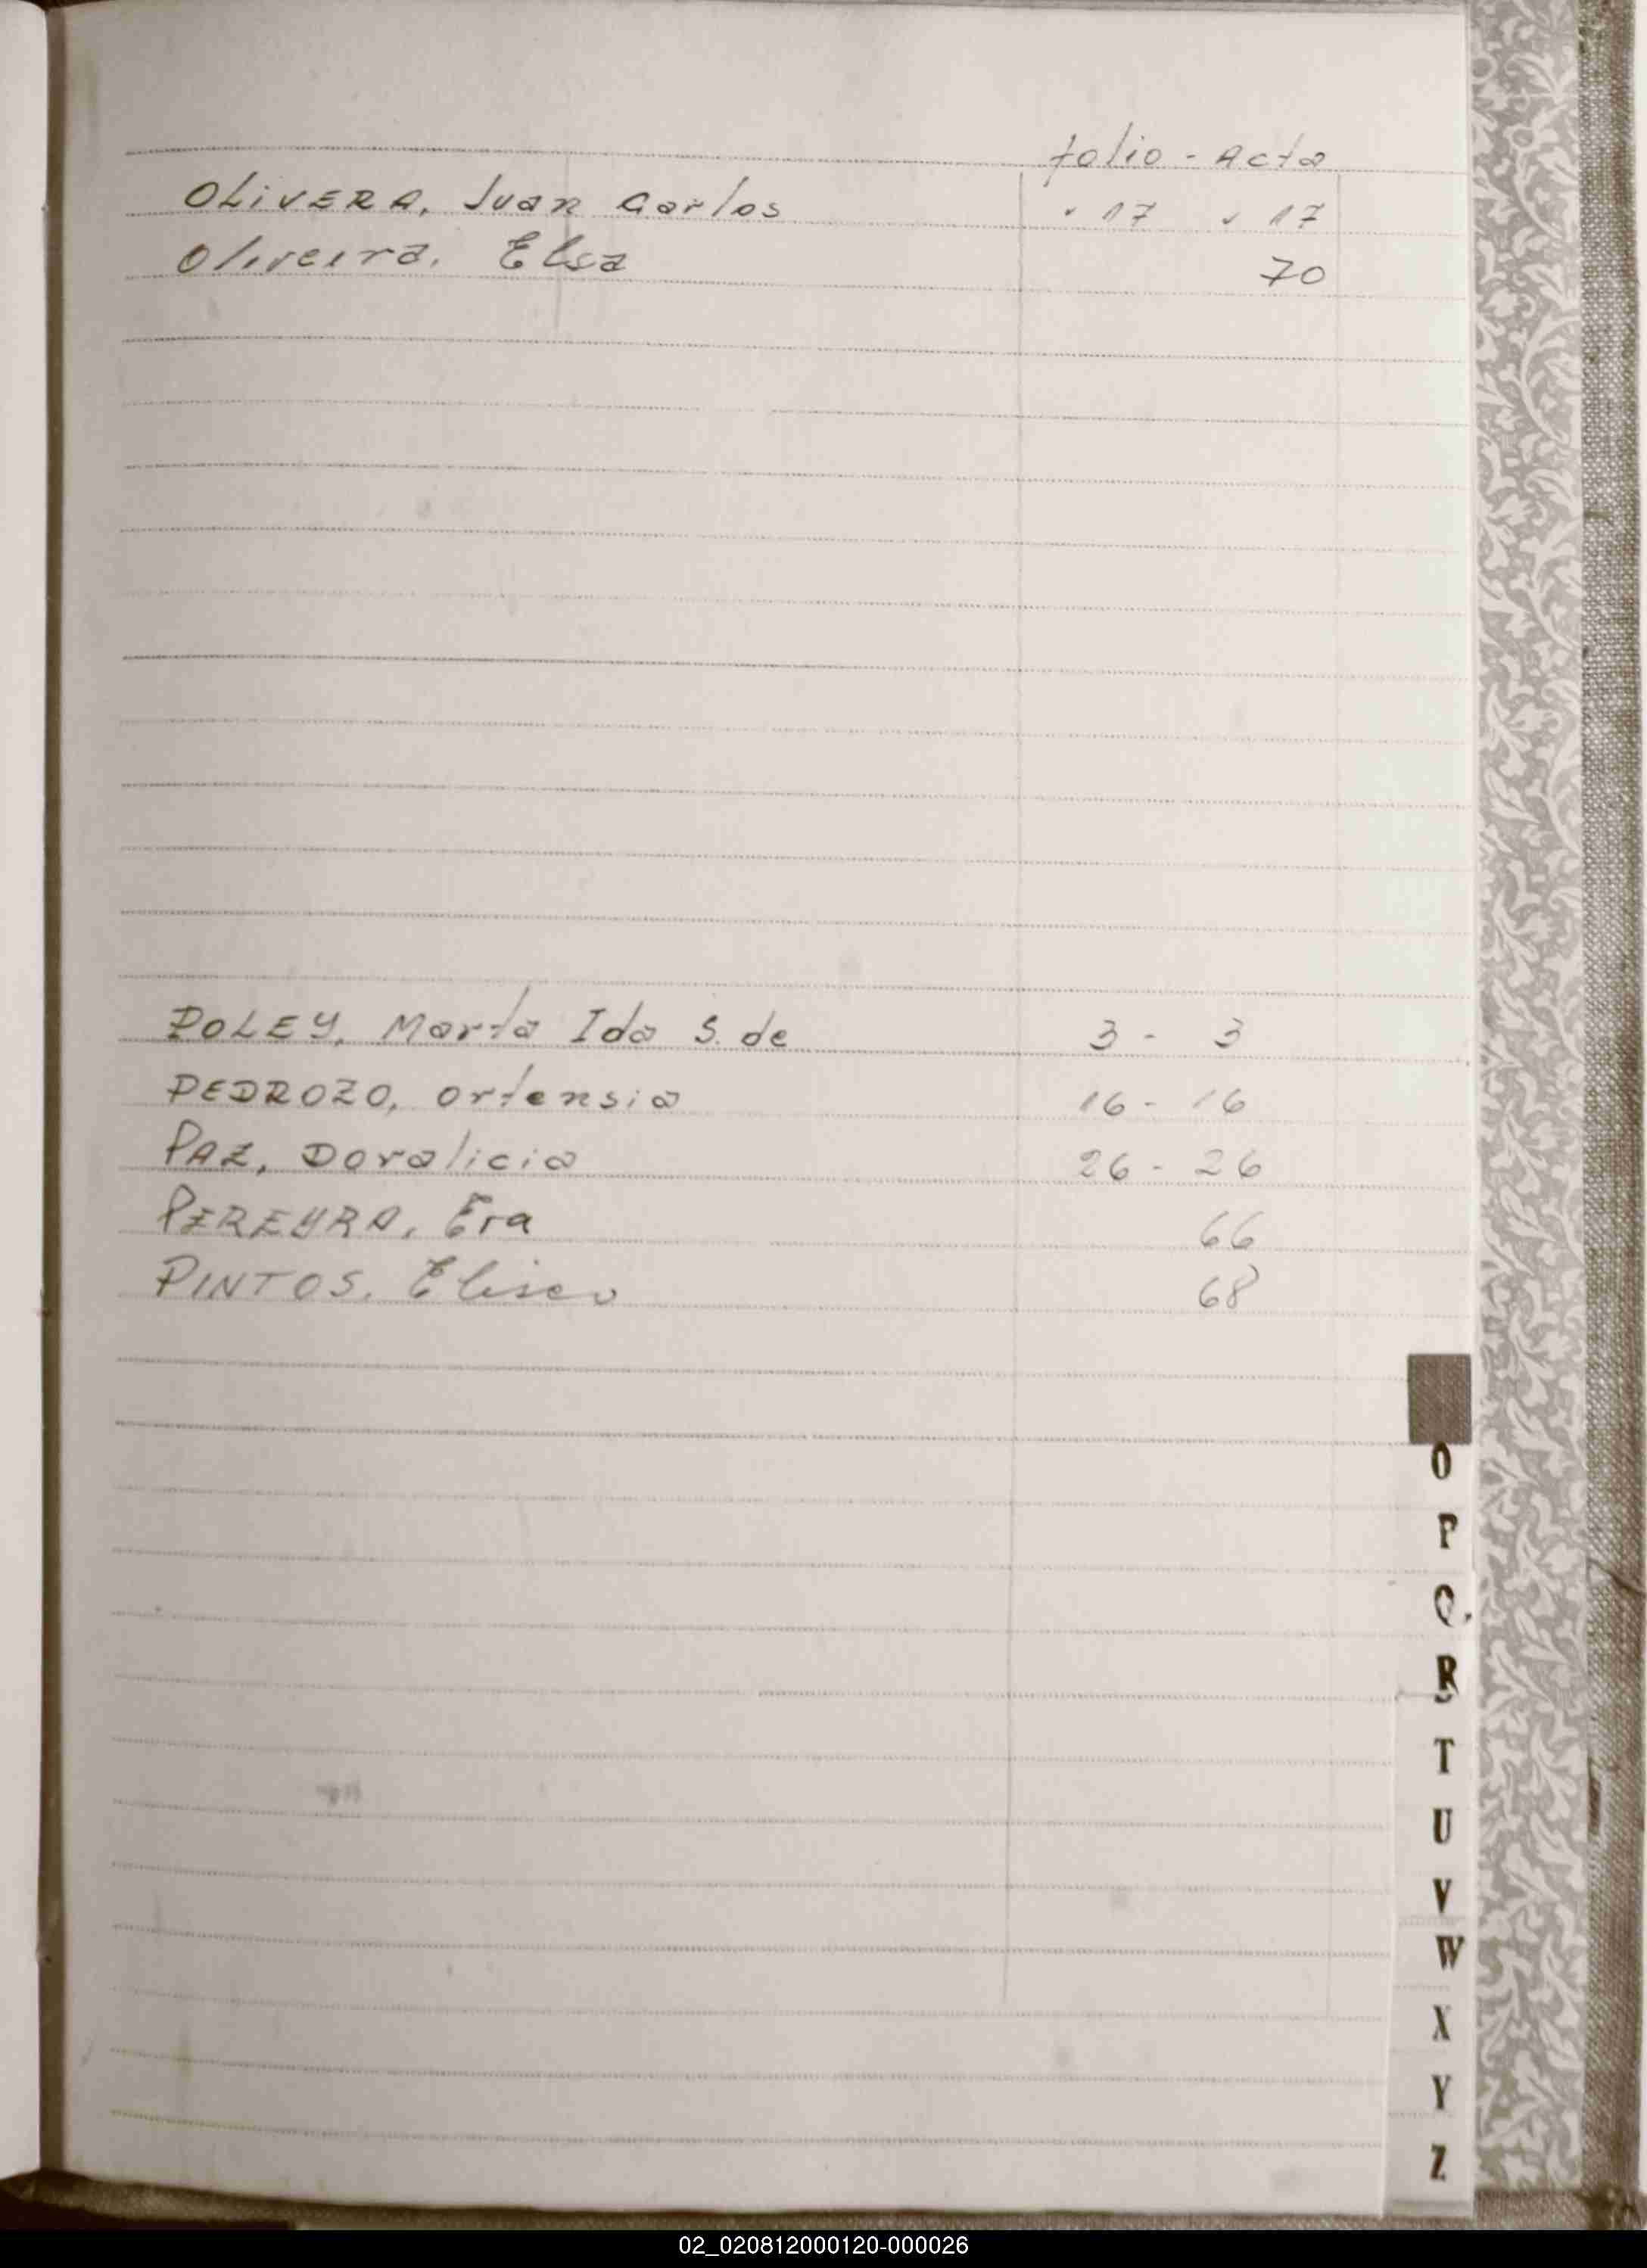 folio - Acta
OLiVERA, Juan Carlos 17 17
Oliveira, Elsa 70
POLEY, Marta Ida S. de 3 - 3
PEDROZO, Ortensia 16 - 16
PAZ, Doralicia 26 - 26
PEREYRA, Eva 66
PINTOS, Eliseo 68
O
P
Q
R
S
T
U
V
W
X
Y
Z
02_020812000120-000026